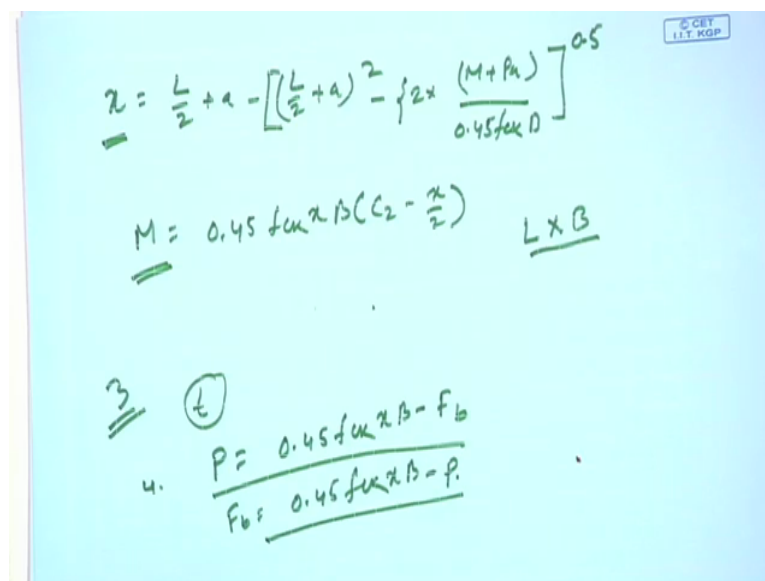 © CET
I.I.T. KGP
x = L/2 + a - [(L/2 + a)² - {2× (M+Pa) / 0.45fck B]^0.5
M = 0.45 fck x B(C₂ - x/2)
L X B
3 (t)
4. P = 0.45 fck x B - Fb
Fb = 0.45 fck x B - P.